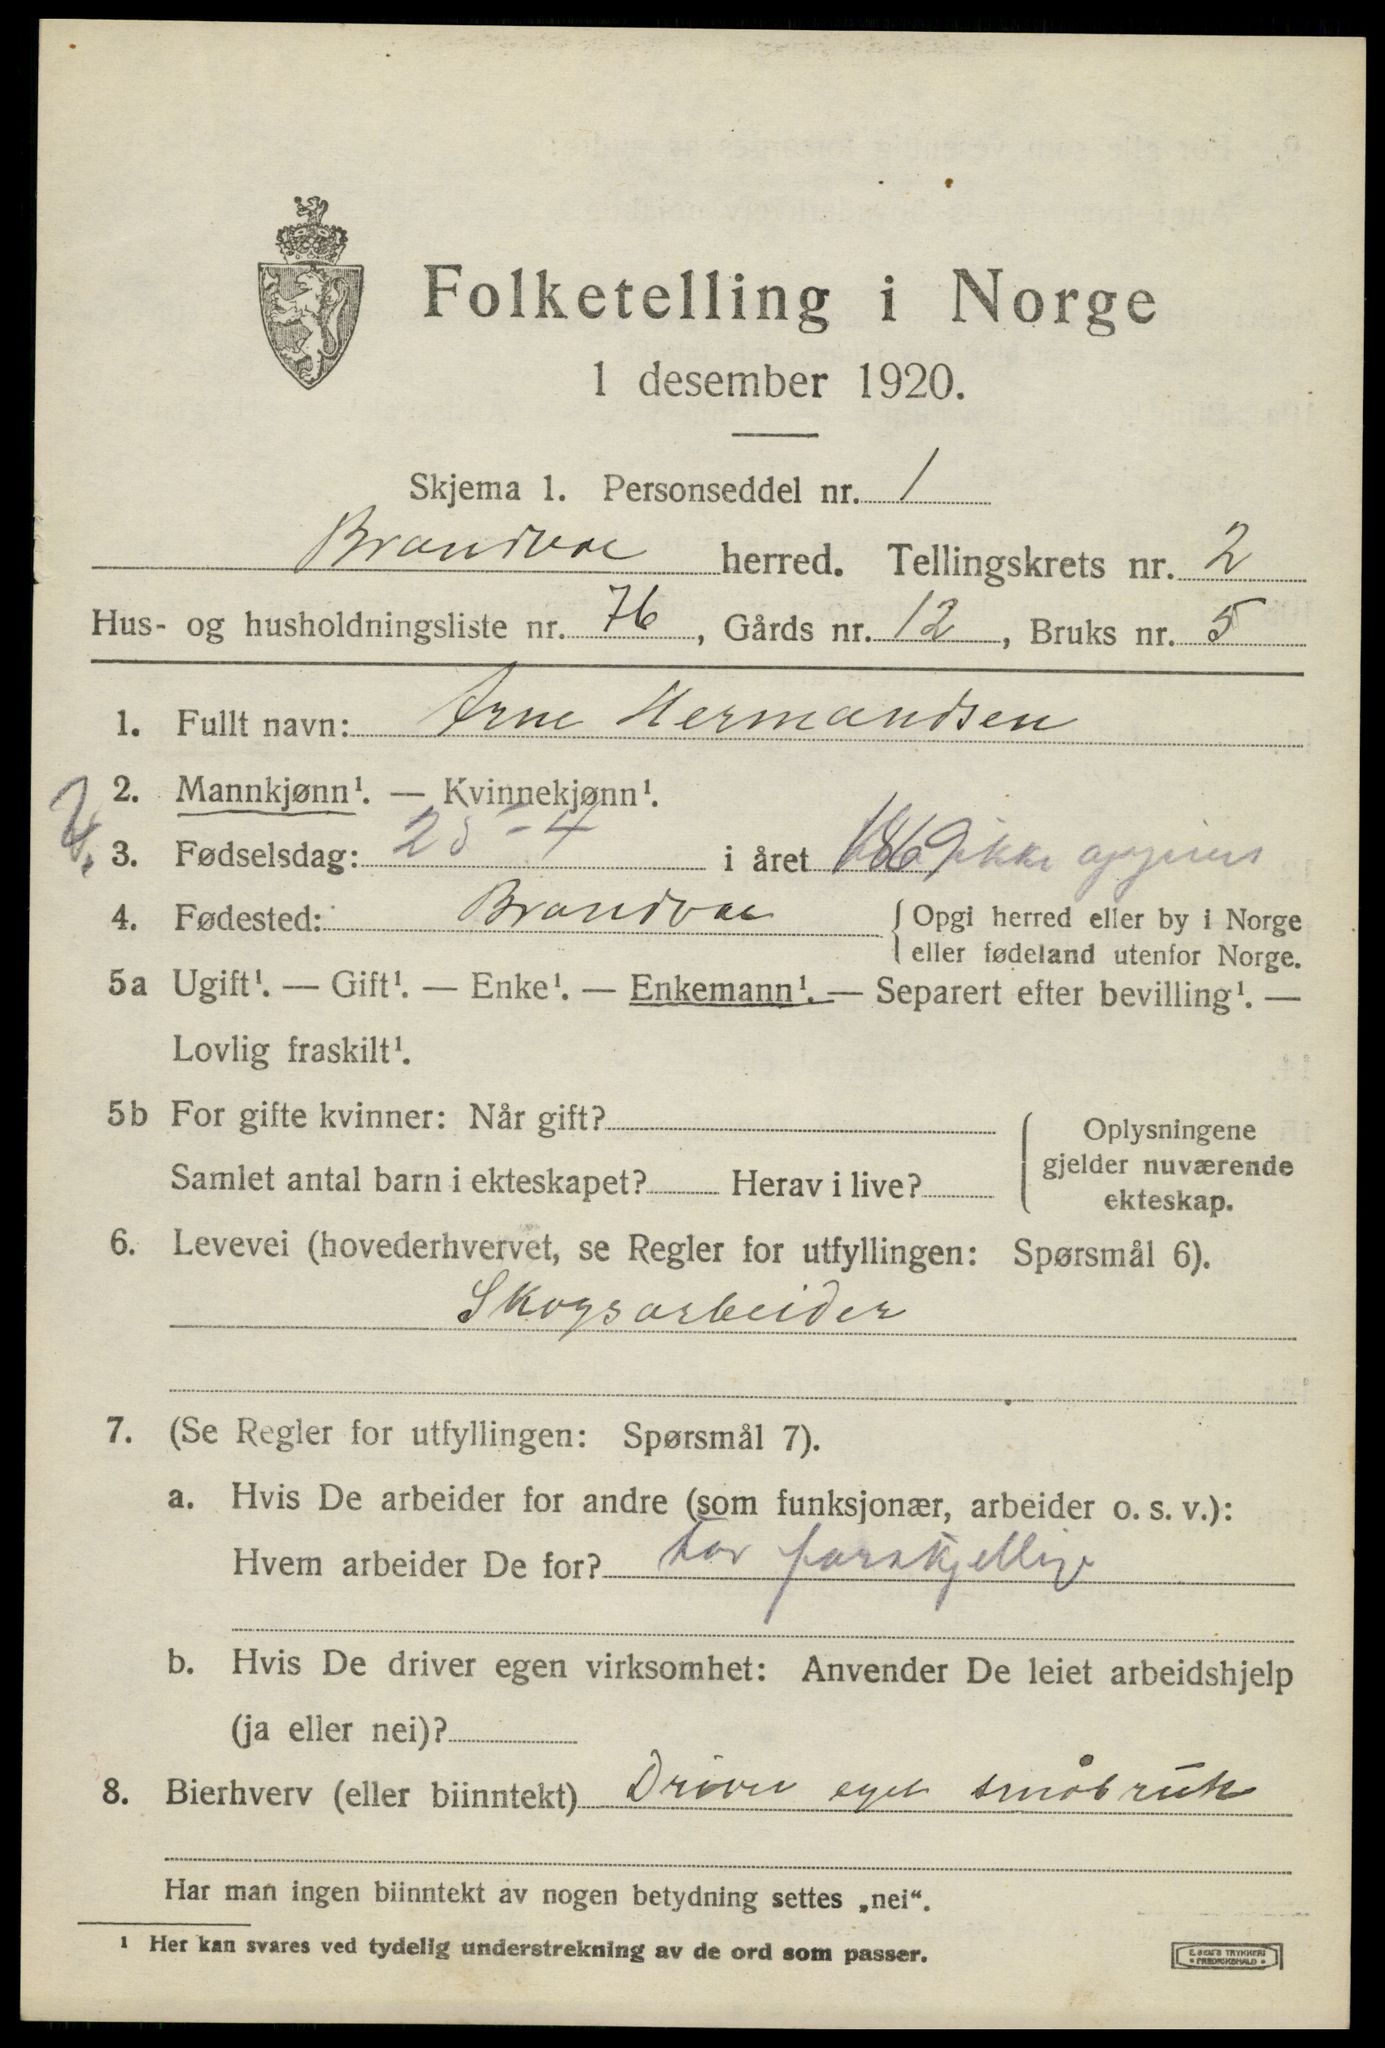 Folketelling i Norge
1 desember 1920.
Skjema 1. Personseddel nr. 1
Brandvæ herred. Tellingskrets nr. 2
Hus- og husholdningsliste nr. 76, Gårds nr. 12, Bruks nr. 5
1. Fullt navn: Arne Hermandsen
2. Mannkjønn¹. — Kvinnekjønn¹.
3. Fødselsdag: 25-4 i året 1869 ikke
4. Fødested: Brandvæ
{ Opgi herred eller by i Norge
eller fødeland utenfor Norge.
5a Ugift¹. — Gift¹. — Enke¹. — Enkemann¹. — Separert efter bevilling¹. —
Lovlig fraskilt¹.
5b For gifte kvinner: Når gift?
Samlet antal barn i ekteskapet? Herav i live?
Oplysningene
gjelder nuværende
ekteskap.
6. Levevei (hovederhvervet, se Regler for utfyllingen: Spørsmål 6).
Skogsarbeider
7. (Se Regler for utfyllingen: Spørsmål 7).
a. Hvis De arbeider for andre (som funksjonær, arbeider o. s. v.):
Hvem arbeider De for? for forskjellige
b. Hvis De driver egen virksomhet: Anvender De leiet arbeidshjelp
(ja eller nei)?
8. Bierhverv (eller biinntekt) Driver eget småbruk
Har man ingen biinntekt av nogen betydning settes „nei“.
¹ Her kan svares ved tydelig understrekning av de ord som passer.
E. SEM'S TRYKKERI
* FREDRIKSHALD *